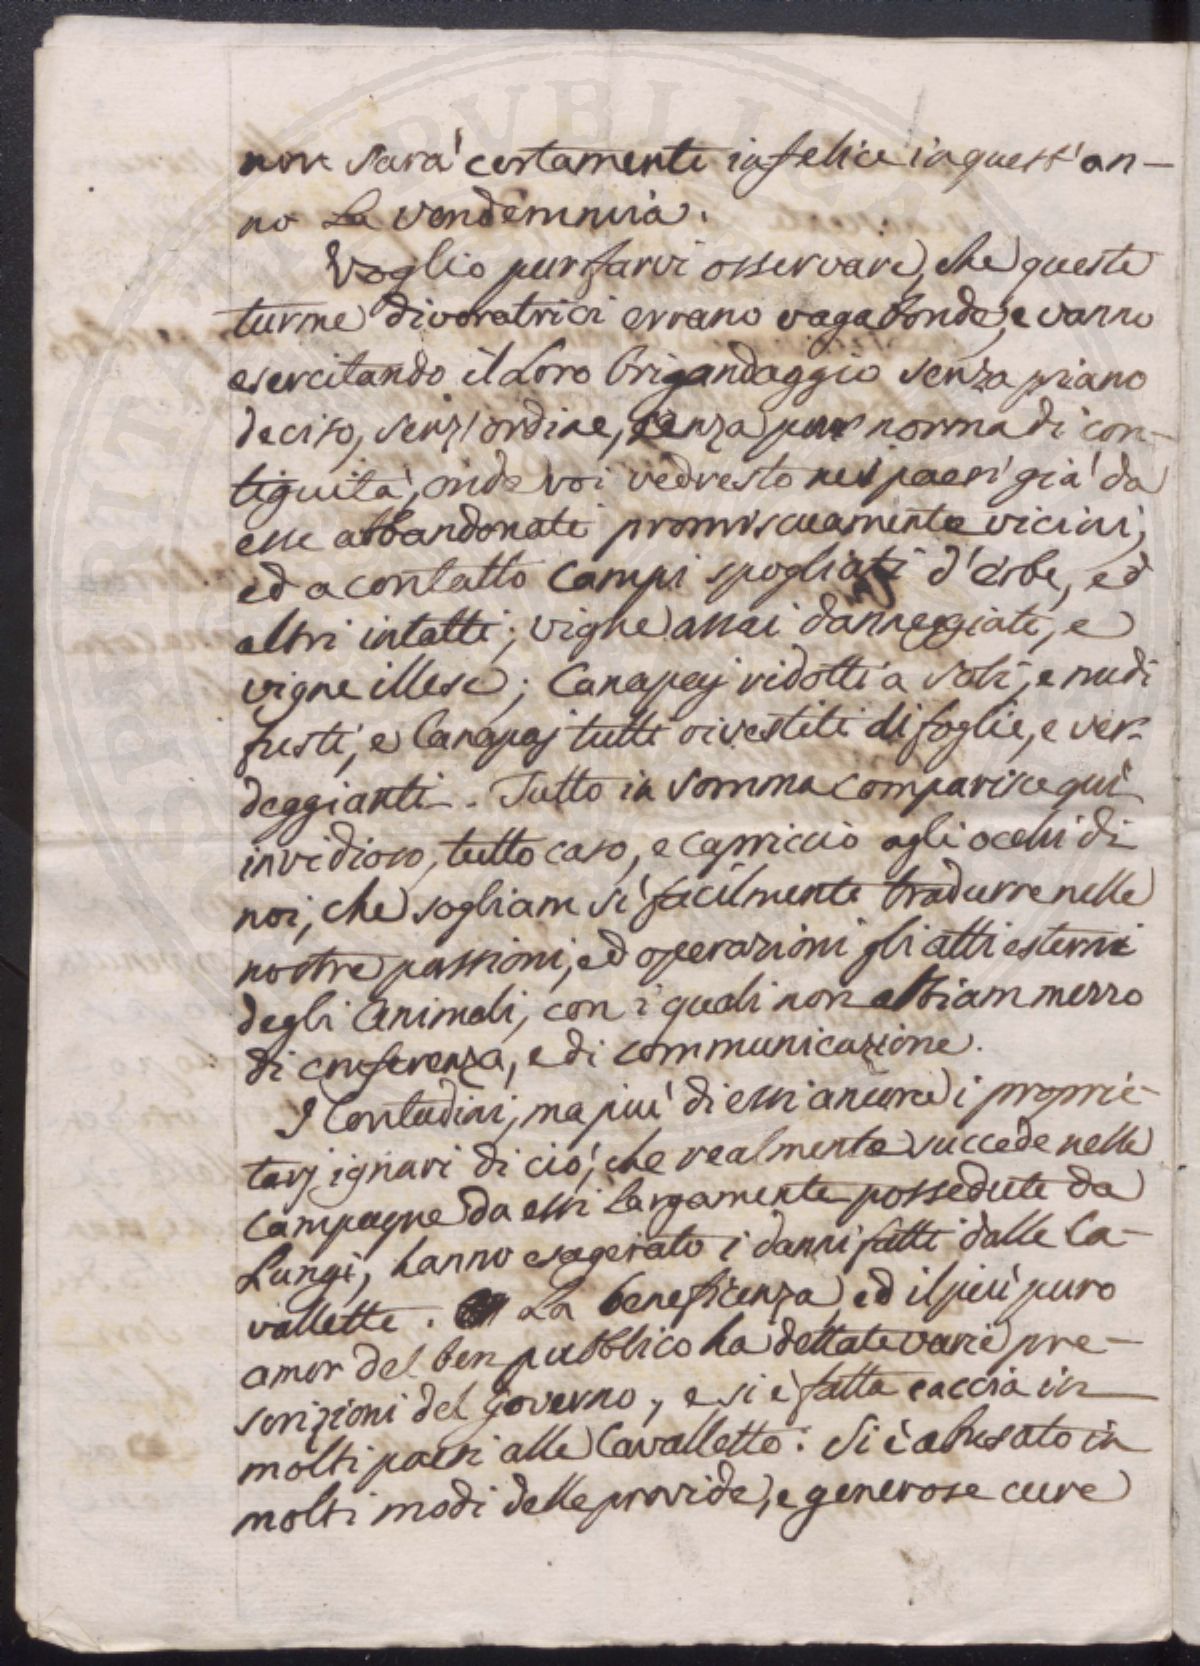 non sarà certamente infelice in quest'an-
no La vendemmia.
Voglio pur farvi osservare, che queste
turme divoratrici errano vagabonde, e vanno
esercitando il Loro brigandaggio senza piano
deciso, senz'ordine, senza pur norma di con-
tiguità, onde voi vedreste nei paesi già da
esse abbandonati promiscuamente vicini,
ed a contatto campi spogliati d'erbe, ed
altri intatti; vigne assai danneggiate, e
vigne illese; Canapaj ridotti a soli, e nudi
fusti, e Canapaj tutti rivestiti di foglie, e ver-
deggianti. Tutto in somma comparisce quì
invidioso, tutto caso, e capriccio agli occhi di
noi, che sogliam sì facilmente tradurre nelle
nostre passioni, ed operazioni gli atti esterni
degli Animali, con i quali non abbiam mezzo
di conferenza, e di communicazione.
I Contadini, ma più di essi ancora i proprie-
tarj ignari di ciò, che realmente succede nelle
campagne da essi Largamente possedute da
Lungi, hanno esagerato i danni fatti dalle Ca-
vallette. La beneficenza, ed il più puro
amor del ben pubblico ha dettate varie pre-
scrizioni del Governo, e si è fatta caccia in
molti paesi alle Cavallette. Si è abusato in
molti modi delle provide, e generose cure